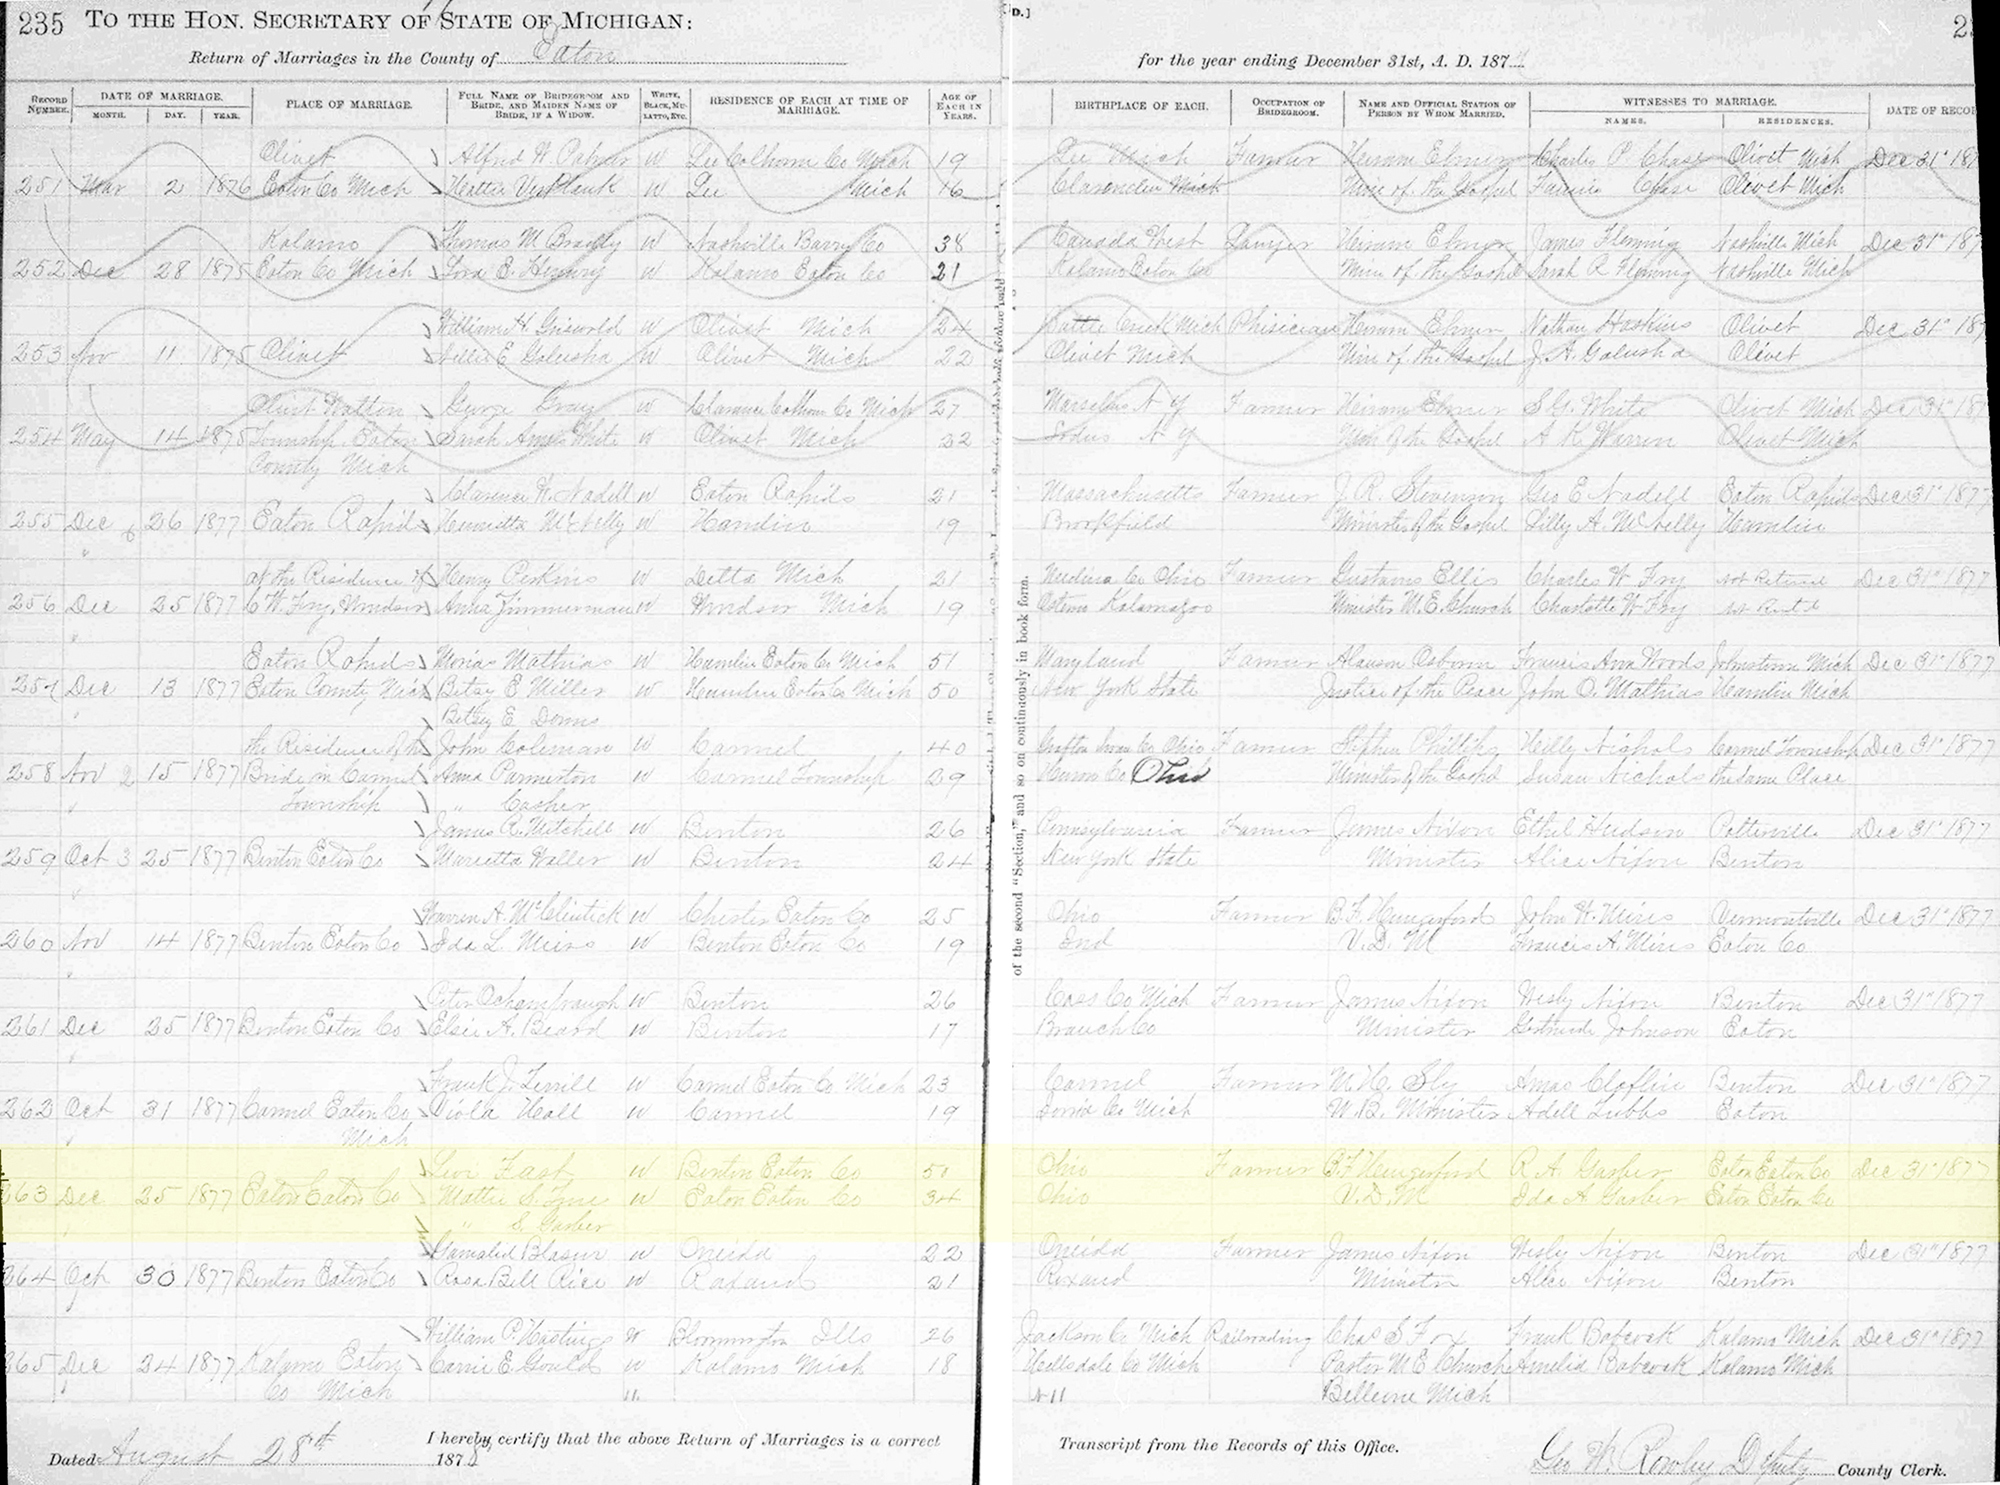 235 TO THE HON. SECRETARY OF STATE OF MICHIGAN:
Return of Marriages in the County of Eaton
for the year ending December 31st, A. D. 187
RECORD NUMBER. DATE OF MARRIAGE. MONTH. DAY. YEAR. PLACE OF MARRIAGE. FULL NAME OF BRIDEGROOM AND BRIDE, AND MAIDEN NAME OF BRIDE, IF A WIDOW. WHITE, BLACK, MULATTO, ETC. RESIDENCE OF EACH AT TIME OF MARRIAGE. AGE OF EACH IN YEARS. BIRTHPLACE OF EACH. OCCUPATION OF BRIDEGROOM. NAME AND OFFICIAL STATION OF PERSON BY WHOM MARRIED. WITNESSES TO MARRIAGE. NAMES. RESIDENCES. DATE OF RECO
Olivet Alfred W. Palmer W Lee Calhoun Co Mich 19 Lee Mich Farmer Hiram Elmer Charles P. Chase Olivet Mich Dec 31st 187
251 Mar 2 1876 Eaton Co Mich Hattie VerPlank W Lee Mich 16 Clarendon Mich Min of the Gospel Fannie Chase Olivet Mich
Kalamo Thomas M W Nashville Barry Co 38 Canada West Lawyer Hiram Elmer James Fleming Nashville Mich Dec 31st 187
252 Dec 28 1875 Eaton Co Mich E. W Kalamo Eaton Co 21 Kalamo Eaton Co Min of the Gospel Sarah R Fleming Nashville Mich
William H. Griswold W Olivet Mich 24 Battle Creek Mich Phisician Hiram Elmer Nathan Hoskins Olivet Dec 31st 187
253 Nov 11 1875 Olivet Nellie E Galusha W Olivet Mich 22 Olivet Mich Min of the Gospel J. A. Galusha Olivet
Olivet Walton George Gray W Clarence Calhoun Co Mich 27 Marcellus N Y Farmer Hiram Elmer S. G. White Olivet Mich Dec 31st 187
254 May 14 1875 Township Eaton Sarah White W Olivet Mich 32 Sodus N Y Min of the Gospel A K Warren Olivet Mich
County Mich
Clarence W. Nadell W Eaton Rapids 21 Massachusetts Farmer J. R. Stevenson Geo E Nadell Eaton Rapids Dec 31st 1877
255 Dec 26 1877 Eaton Rapids Henrietta McNelly W Hamlin 19 Brookfield Minister of the Gospel Lilly A. McNelly Hamlin
at the Residence of Henry Perkins W Delta Mich 21 Medina Co Ohio Farmer Gustavus Ellis Charles W Fry not Returned Dec 31st 1877
256 Dec 25 1877 C W. Fry, Windsor Anna Zimmerman W Windsor Mich 19 Kalamazoo Minister M. E. Church Charlotte W Fry
Eaton Rapids Mathias W Hamlin Eaton Co Mich 51 Maryland Farmer Alanson Osborn Francis Ann Woods Johnstown Mich Dec 31st 1877
257 Dec 13 1877 Eaton County Mich Betsy E Miller W Hamlin Eaton Co Mich 50 New York State Justice of the Peace John O. Mathias Hamlin Mich
Betsy E
the Residence of the John Coleman W Carmel 40 Ohio Farmer Stephen Phillips Nichols Carmel Township Dec 31st 1877
258 Nov 2 15 1877 Bride in Carmel Anna Parmeston W Carmel Township 29 Huron Co Ohio Minister of the Gospel Susan Nichols the same Place
Township " Cosher
James R. Mitchell W Benton 26 Pennsylvania Farmer James Nixon Ethel Hudson Potterville Dec 31st 1877
259 Oct 3 25 1877 Benton Eaton Co Marietta Waller W Benton 24 New York State Minister Alice Nixon Benton
Warren A. McClintick W Chester Eaton Co 25 Ohio Farmer B. F. Hungerford John H. Mires Vermontville Dec 31st 1877
260 Nov 14 1877 Benton Eaton Co Ida L. Mires W Benton Eaton Co 19 Ind V. D. M Francis A. Mires Eaton Co
Peter W Benton 26 Cass Co Mich Farmer James Nixon Wesly Nixon Benton Dec 31st 1877
261 Dec 25 1877 Benton Eaton Co Elsie A. Beard W Benton 17 Branch Co Minister Gertrude Johnson Eaton
Frank J. Terrill W Carmel Eaton Co Mich 23 Carmel Farmer M. H. Sly Amas Claflin Benton Dec 31st 1877
262 Oct 31 1877 Carmel Eaton Co Viola Hall W Carmel 19 Ionia Co Mich W. B. Minister Adell Tubbs Eaton
Mich
Levi Fast W Benton Eaton Co 50 Ohio Farmer B. F. Hungerford R A. Garber Eaton Eaton Co Dec 31st 1877
263 Dec 25 1877 Eaton Eaton Co Mattie S. W Eaton Eaton Co 34 Ohio V. D. M Ida A Garber Eaton Eaton Co
" S. Garber
Gamaliel Blasier W Oneida 22 Oneida Farmer James Nixon Wesly Nixon Benton Dec 31st 1877
264 Oct 30 1877 Benton Eaton Co Rosa Bell Rice W Roxand 21 Roxand Minister Alice Nixon Benton
William P. Hastings W Bloomington Ills 26 Jackson Co Mich Railroading Chas S Fox Frank Babcock Kalamo Mich Dec 31st 1877
265 Dec 24 1877 Kalamo Eaton Carrie E. Gould W Kalamo Mich 18 Hillsdale Co Mich Pastor M E Church Amelia Babcock Kalamo Mich
Co Mich Bellevue Mich
of the second "Section," and so on continuously in book form.
Dated August 28th 1878 I hereby certify that the above Return of Marriages is a correct Transcript from the Records of this Office.
Geo W. Rowley Deputy County Clerk.